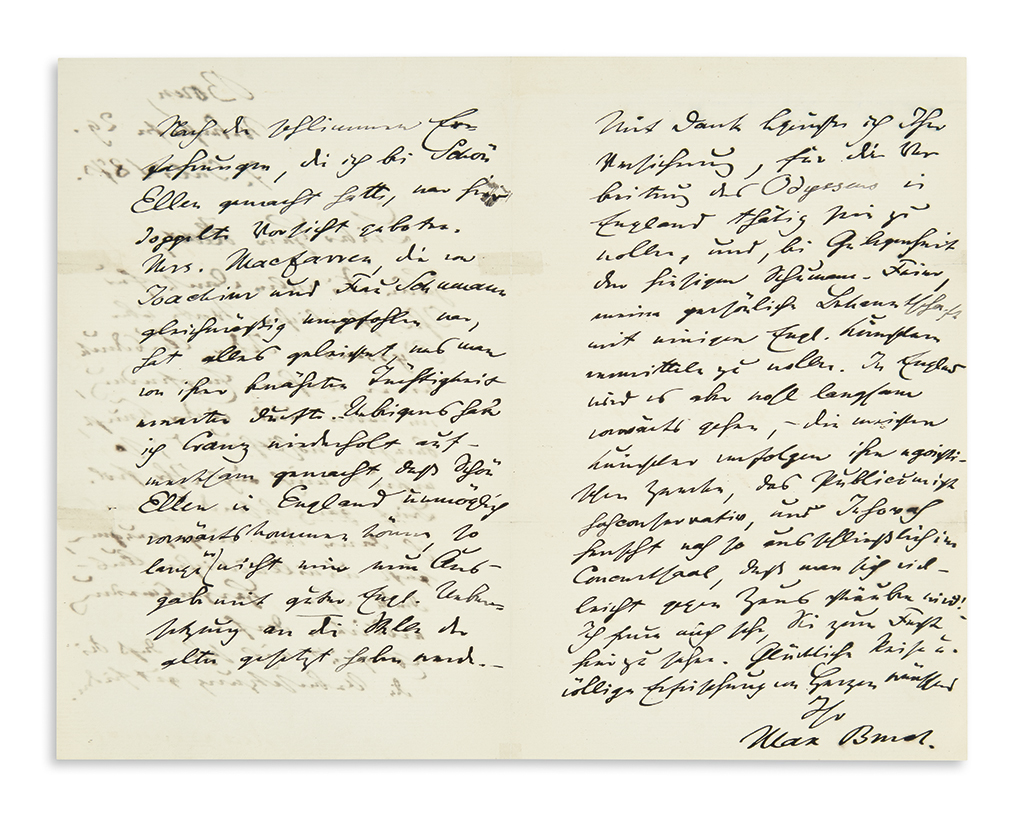 Nach den schlimmen Er-
fahrungen, die ich bei Schön
Ellen gemacht hatte, war hier
doppelte Vorsicht geboten.
Mrs. Macfarren, die von
Joachim und Frau Schumann
gleichmäßig empfohlen war,
hat alles geleistet was man
von ihrer bewährten Tüchtigkeit
erwarten durfte. Uebrigens habe
ich Cranz wiederholt auf-
merksam gemacht, daß Schön
Ellen in England unmöglich
vorwärtskommen könne, so
lange nicht eine neue Aus-
gabe mit guter Engl. Ueber-
setzung an die Stelle der
alten gesetzt haben werde. –
Mit Dank begrüße ich Ihre
Versicherung, für die Ver
breitung des Odysseus in
England thätig sein zu
wollen, und, bei Gelegenheit
der hiesigen Schumann-Feier,
meine persönliche Bekanntschaft
mit einigen Engl. Künstlern
vermitteln zu wollen. In England
wird es aber wohl langsam
vorwärts gehen, – die meisten
Künstler verfolgen ihre egoisti-
schen Zwecke, das Publicum ist
conservativ, und Jehovah
herrscht noch so ausschließlich im
Concertsaal, daß man sich viel-
leicht gegen Zeus sträuben wird!
Ich freue mich sehr, Sie zum Fest
hier zu sehen. Glückliche Reise u.
völlige Erfrischung von Herzen wünschend
Ihr
Max Bruch.
Bonn,